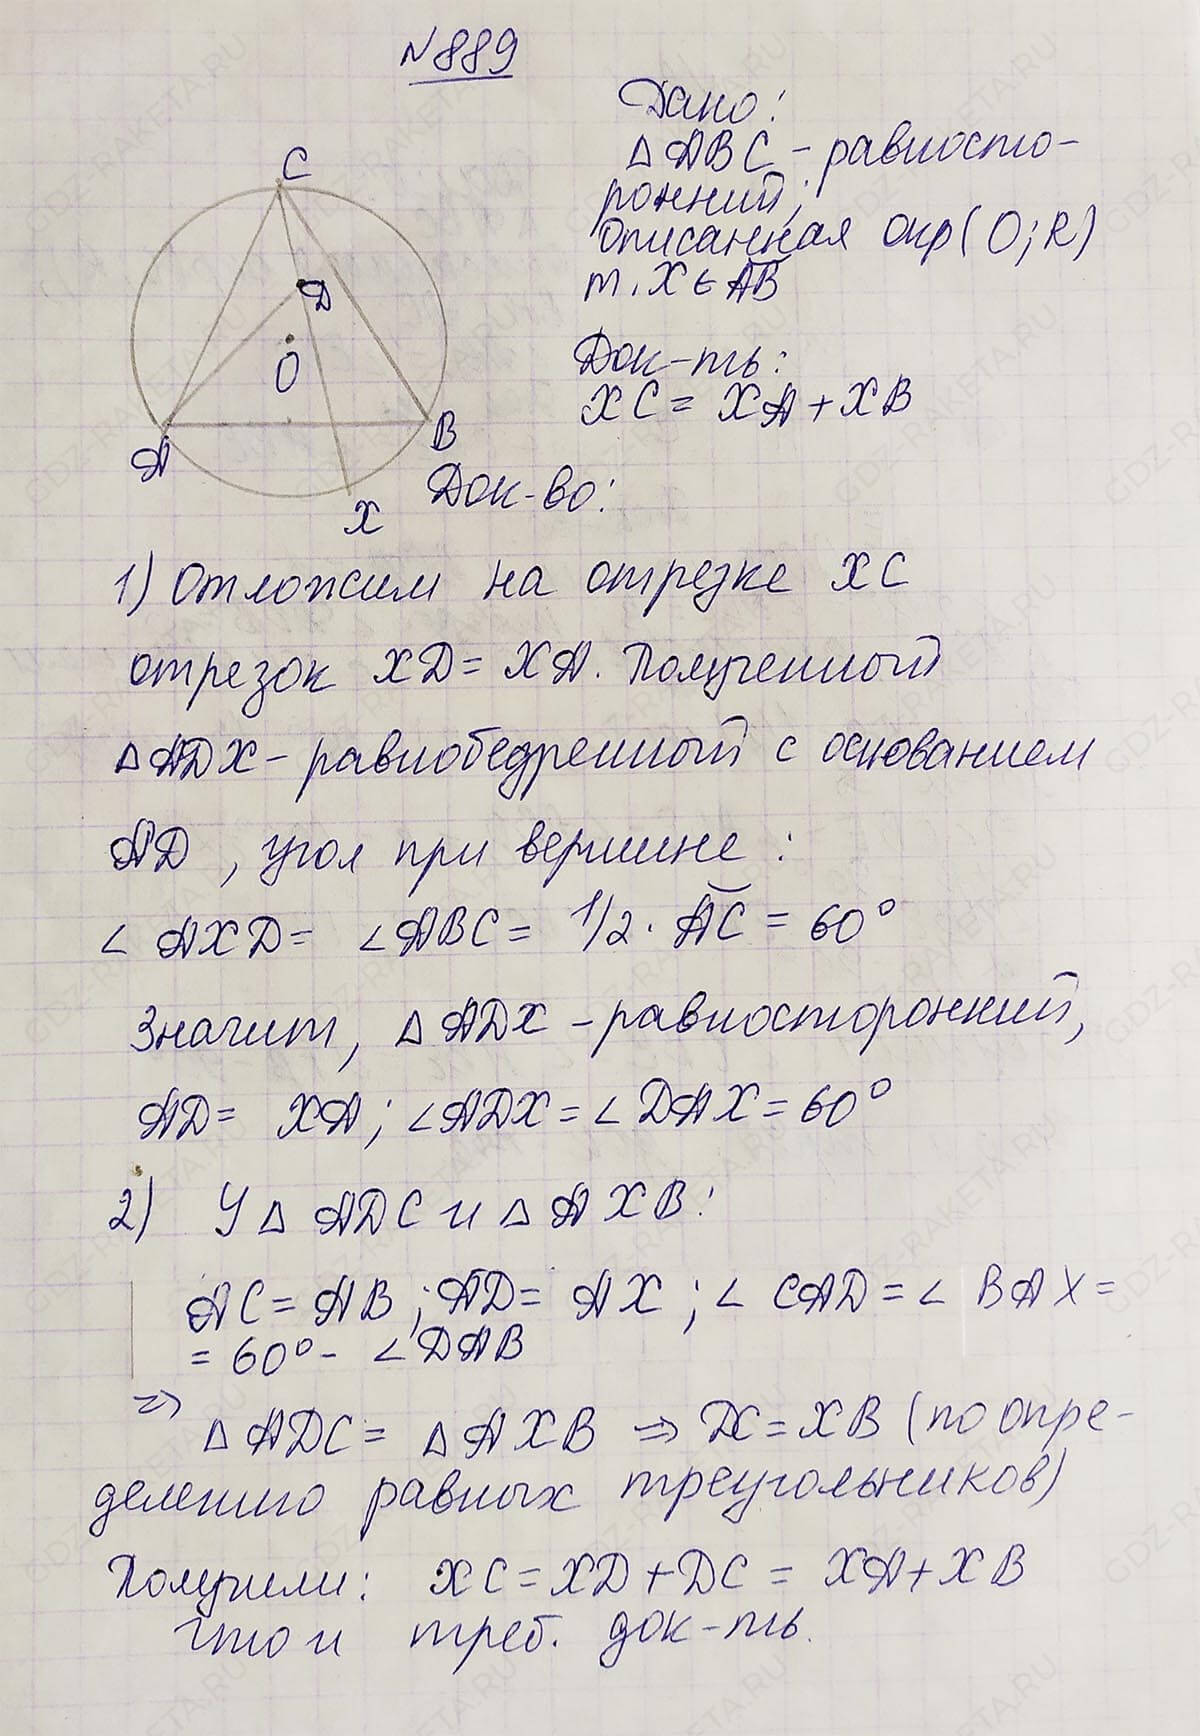 №889
Дано:
△ABC - равносто-
ронний;
описанная окр(O;R)
т. X ∈ AB
Док-ть:
XC = XA + XB
C
D
O
A
B
X
Док-во:
1) Отложим на отрезке XC
отрезок XD = XA. Полученный
△ADX - равнобедренный с основанием
AD, угол при вершине:
∠AXD = ∠ABC = 1/2 · ◡AC = 60°
Значит, △ADX - равносторонний,
AD = XA; ∠ADX = ∠DAX = 60°
2) У △ADC и △AXB:
AC = AB; AD = AX; ∠CAD = ∠BAX =
= 60° - ∠DAB
=>
△ADC = △AXB => DC = XB (по опре-
делению равных треугольников)
Получили: XC = XD + DC = XA + XB
что и треб. док-ть.
GDZ-RAKETA.RU